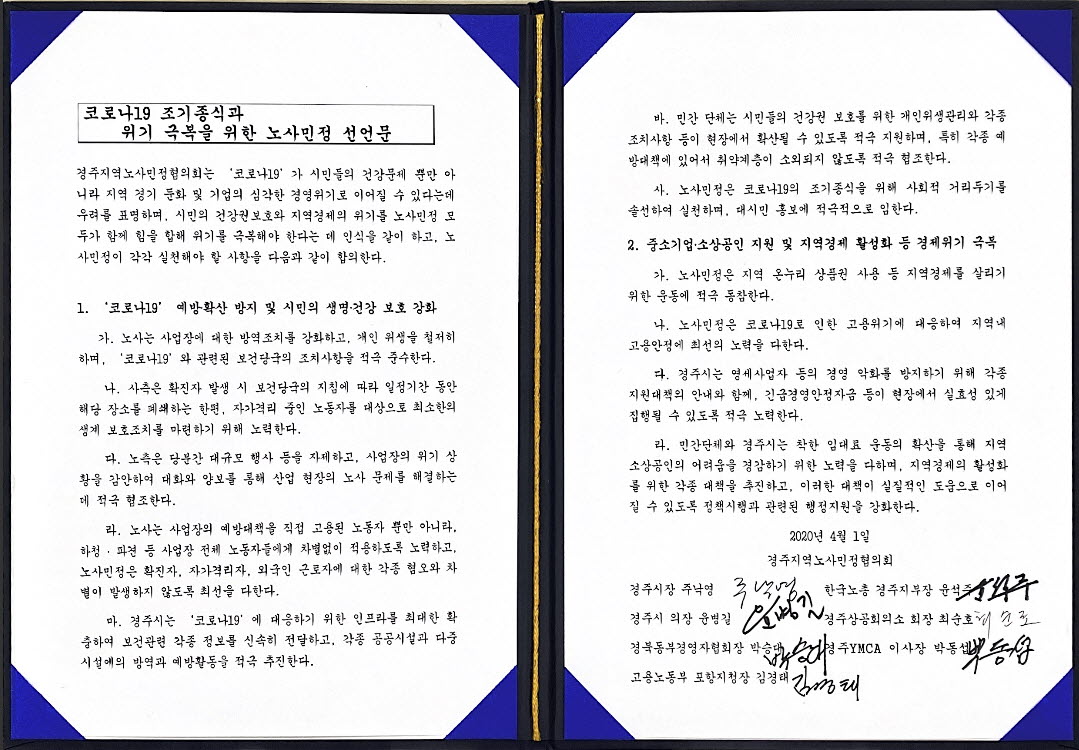 코로나19 조기종식과
위기 극복을 위한 노사민정 선언문
경주지역노사민정협의회는 ‘코로나19’가 시민들의 건강문제 뿐만 아
니라 지역 경기 둔화 및 기업의 심각한 경영위기로 이어질 수 있다는데
우려를 표명하며, 시민의 건강권보호와 지역경제의 위기를 노사민정 모
두가 함께 힘을 합해 위기를 극복해야 한다는 데 인식을 같이 하고, 노
사민정이 각각 실천해야 할 사항을 다음과 같이 합의한다.
1. ‘코로나19’ 예방확산 방지 및 시민의 생명·건강 보호 강화
가. 노사는 사업장에 대한 방역조치를 강화하고, 개인 위생을 철저히
하며, ‘코로나19’와 관련된 보건당국의 조치사항을 적극 준수한다.
나. 사측은 확진자 발생 시 보건당국의 지침에 따라 일정기간 동안
해당 장소를 폐쇄하는 한편, 자가격리 중인 노동자를 대상으로 최소한의
생계 보호조치를 마련하기 위해 노력한다.
다. 노측은 당분간 대규모 행사 등을 자제하고, 사업장의 위기 상
황을 감안하여 대화와 양보를 통해 산업 현장의 노사 문제를 해결하는
데 적극 협조한다.
라. 노사는 사업장의 예방대책을 직접 고용된 노동자 뿐만 아니라,
하청·파견 등 사업장 전체 노동자들에게 차별없이 적용하도록 노력하고,
노사민정은 확진자, 자가격리자, 외국인 근로자에 대한 각종 혐오와 차
별이 발생하지 않도록 최선을 다한다.
마. 경주시는 ‘코로나19’에 대응하기 위한 인프라를 최대한 확
충하여 보건관련 각종 정보를 신속히 전달하고, 각종 공공시설과 다중
시설에의 방역과 예방활동을 적극 추진한다.
바. 민간 단체는 시민들의 건강권 보호를 위한 개인위생관리와 각종
조치사항 등이 현장에서 확산될 수 있도록 적극 지원하며, 특히 각종 예
방대책에 있어서 취약계층이 소외되지 않도록 적극 협조한다.
사. 노사민정은 코로나19의 조기종식을 위해 사회적 거리두기를
솔선하여 실천하며, 대시민 홍보에 적극적으로 임한다.
2. 중소기업·소상공인 지원 및 지역경제 활성화 등 경제위기 극복
가. 노사민정은 지역 온누리 상품권 사용 등 지역경제를 살리기
위한 운동에 적극 동참한다.
나. 노사민정은 코로나19로 인한 고용위기에 대응하여 지역내
고용안정에 최선의 노력을 다한다.
다. 경주시는 영세사업자 등의 경영 악화를 방지하기 위해 각종
지원대책의 안내와 함께, 긴급경영안정자금 등이 현장에서 실효성 있게
집행될 수 있도록 적극 노력한다.
라. 민간단체와 경주시는 착한 임대료 운동의 확산을 통해 지역
소상공인의 어려움을 경감하기 위한 노력을 다하며, 지역경제의 활성화
를 위한 각종 대책을 추진하고, 이러한 대책이 실질적인 도움으로 이어
질 수 있도록 정책시행과 관련된 행정지원을 강화한다.
2020년 4월 1일
경주지역노사민정협의회
경주시장 주낙영 주낙영 한국노총 경주지부장 윤석주
경주시 의장 윤병길 윤병길 경주상공회의소 회장 최순호 최순호
경북동부경영자협회장 박승대 박승대 경주YMCA 이사장 박동섭 박동섭
고용노동부 포항지청장 김경태 김경태